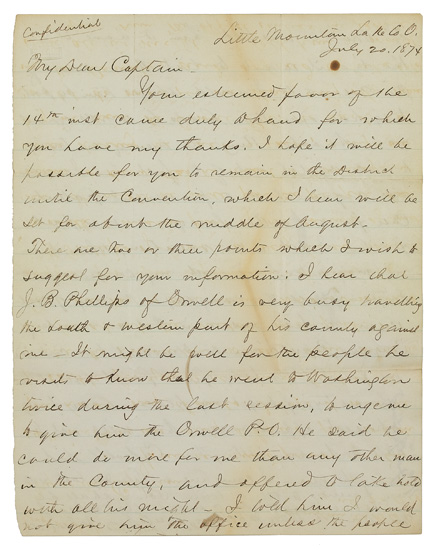 Confidential
Little Mountain Lake Co. O.
July 20. 1874
My Dear Captain
Your esteemed favor of the
14th inst came duly to hand for which
you have my thanks. I hope it will be
possible for you to remain in the District
until the Convention, which I hear will be
set for about the middle of August.
There are two or three points which I wish to
suggest for your information. I hear that
J. B. Phillips of Orwell is very busy travelling
the south & western part of his county against
me - It might be well for the people he
visits to know that he went to Washington
twice during the last session, to urge me
to give him the Orwell P.O. He said he
could do more for me than any other man
in the County, and offered to take hold
with all his might - I told him I would
not give him the office unless the people